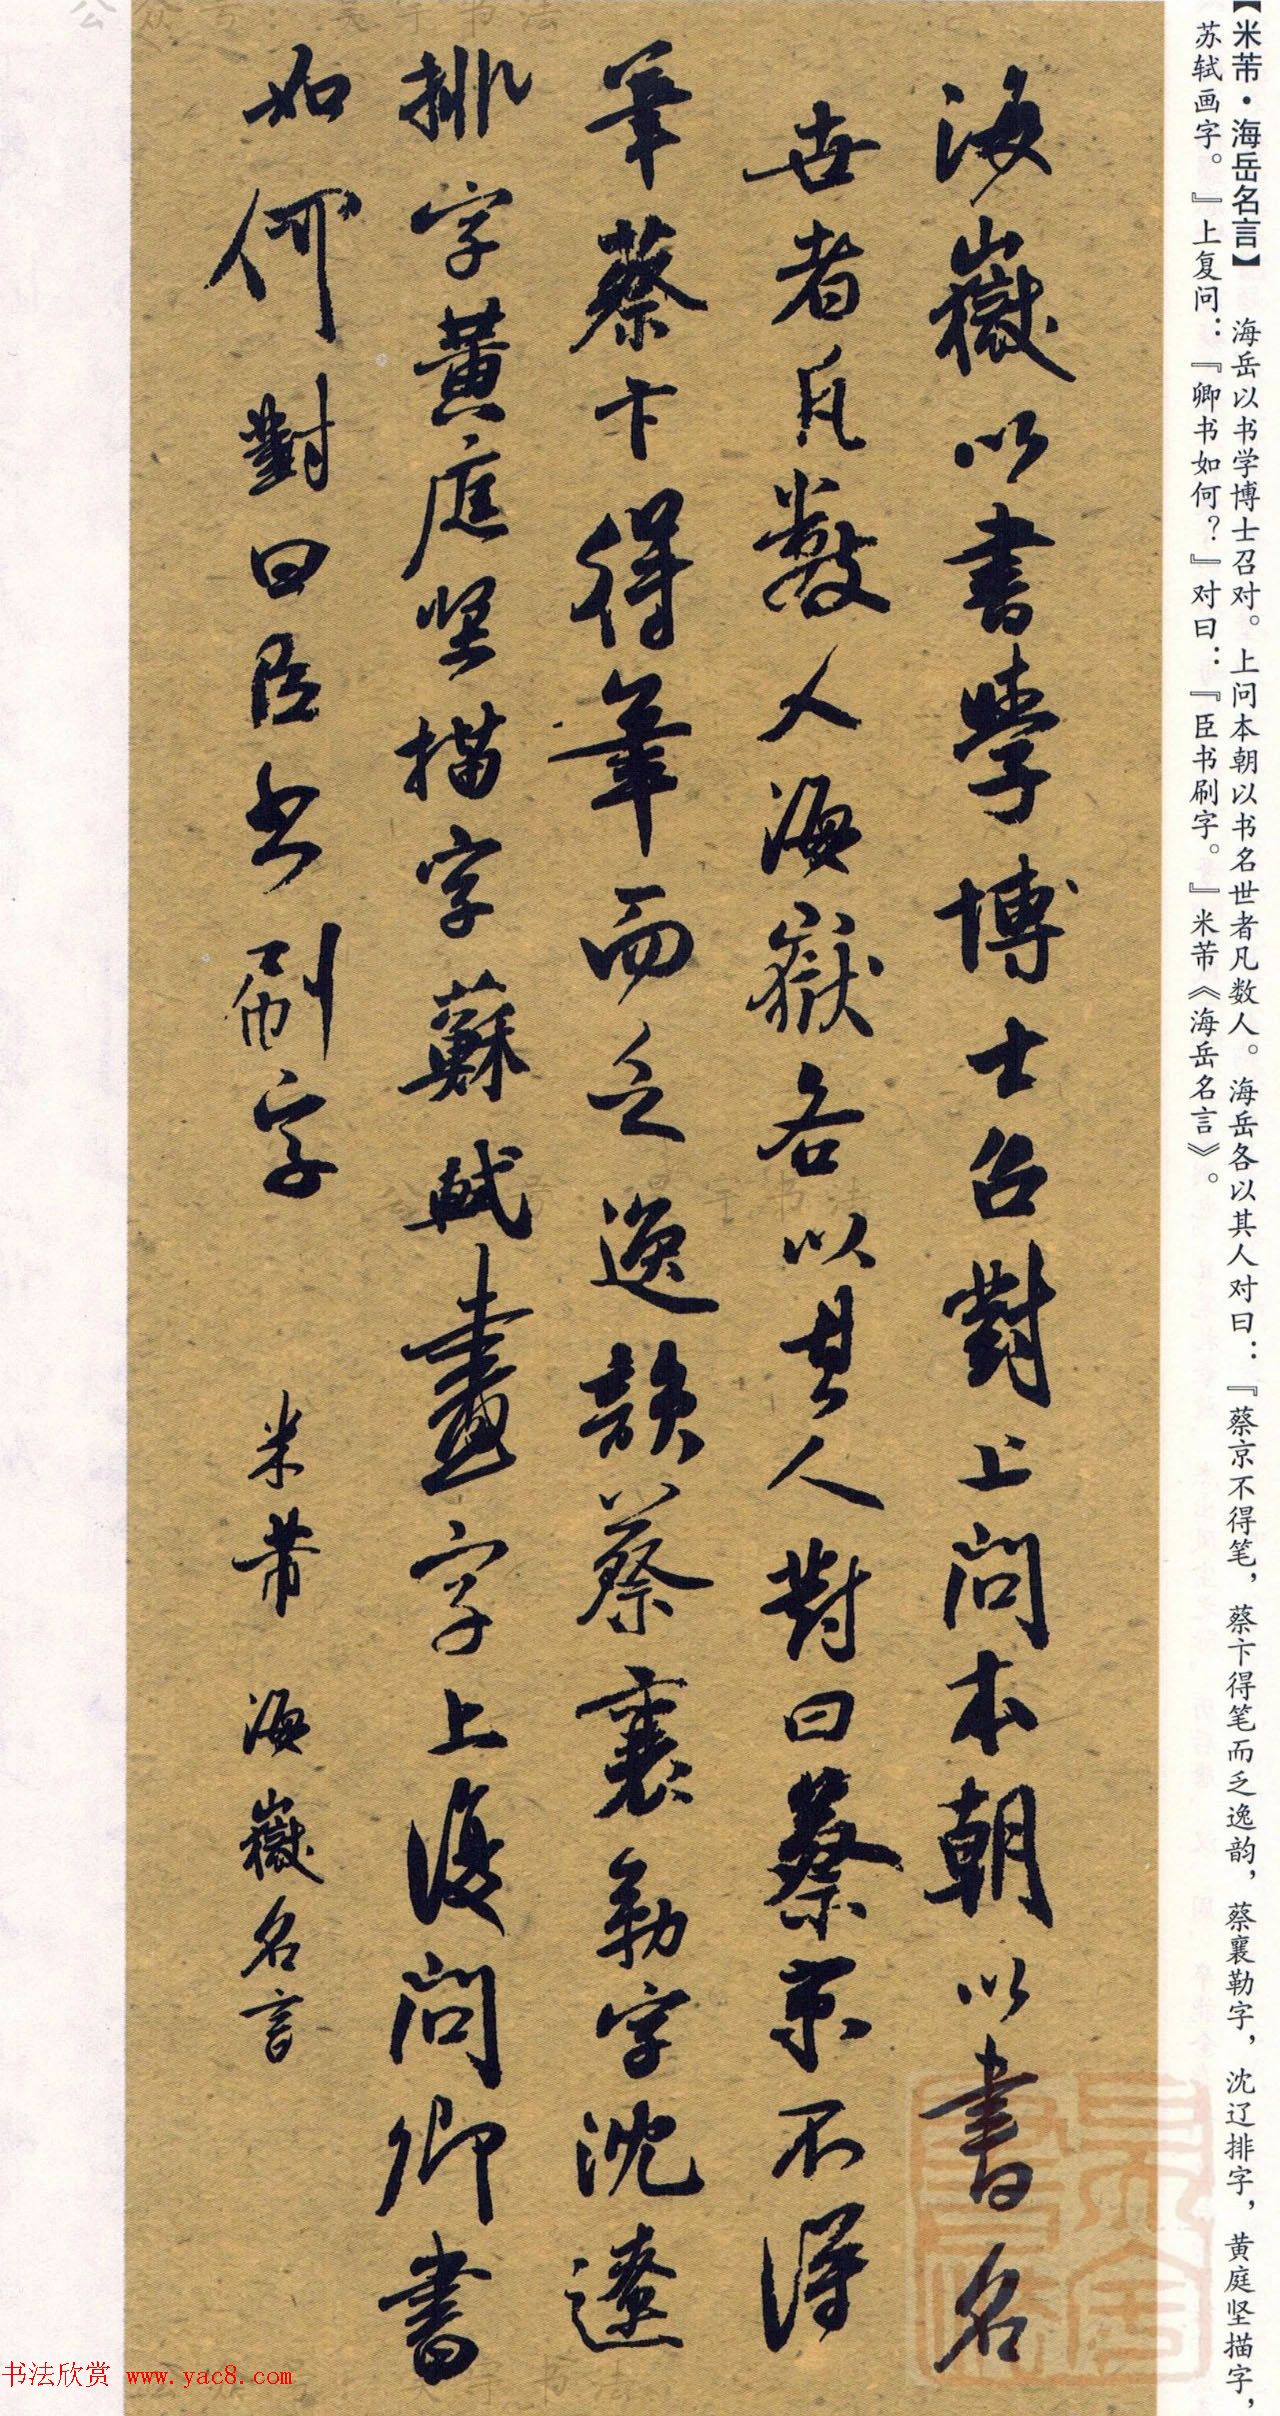 【米芾·海岳名言】 海岳以书学博士召对。上问本朝以书名世者凡数人。海岳各以其人对曰：『蔡京不得笔，蔡卞得笔而乏逸韵，蔡襄勒字，沈辽排字，黄庭坚描字，
苏轼画字。』上复问：『卿书如何？』对曰：『臣书刷字。』米芾《海岳名言》。
海嶽以書學博士召對上问本朝以書名
世者凡數人海嶽各以其人對曰蔡京不得
筆蔡卞得筆而乏逸韻蔡襄勒字沈遼
排字黃庭坚描字蘇軾畫字上復问卿書
如何對曰臣书刷字 米芾 海嶽名言
公众号：吴宇书法
书法欣赏 www.yac8.com